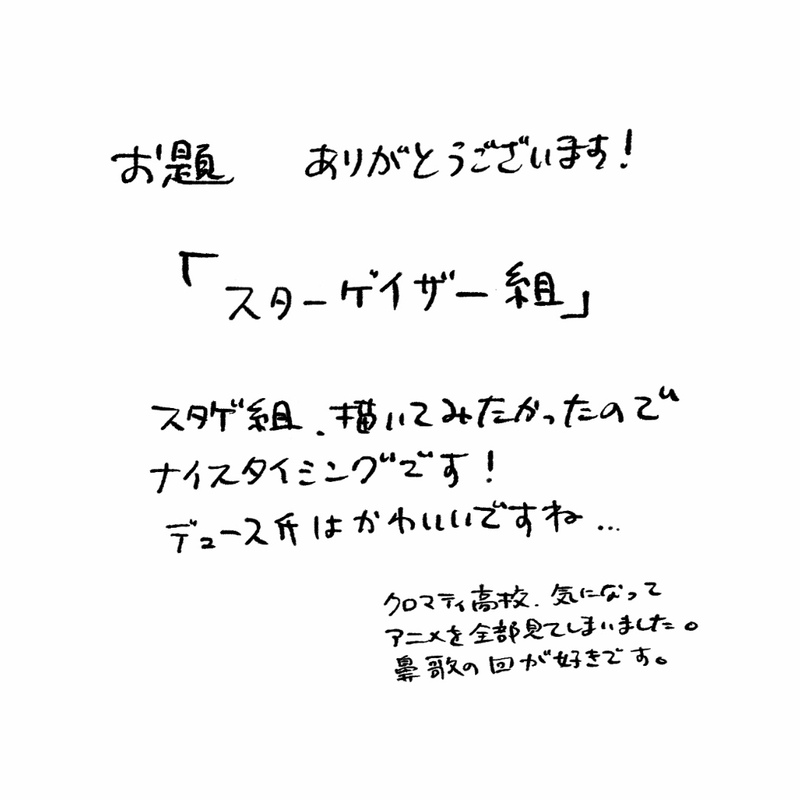 お題　ありがとうございます!
「スターゲイザー組」
スタゲ組、描いてみたかったので
ナイスタイミングです!
デュース氏はかわいいですね…
クロマティ高校、気になって
アニメを全部見てしまいました。
鼻歌の回が好きです。